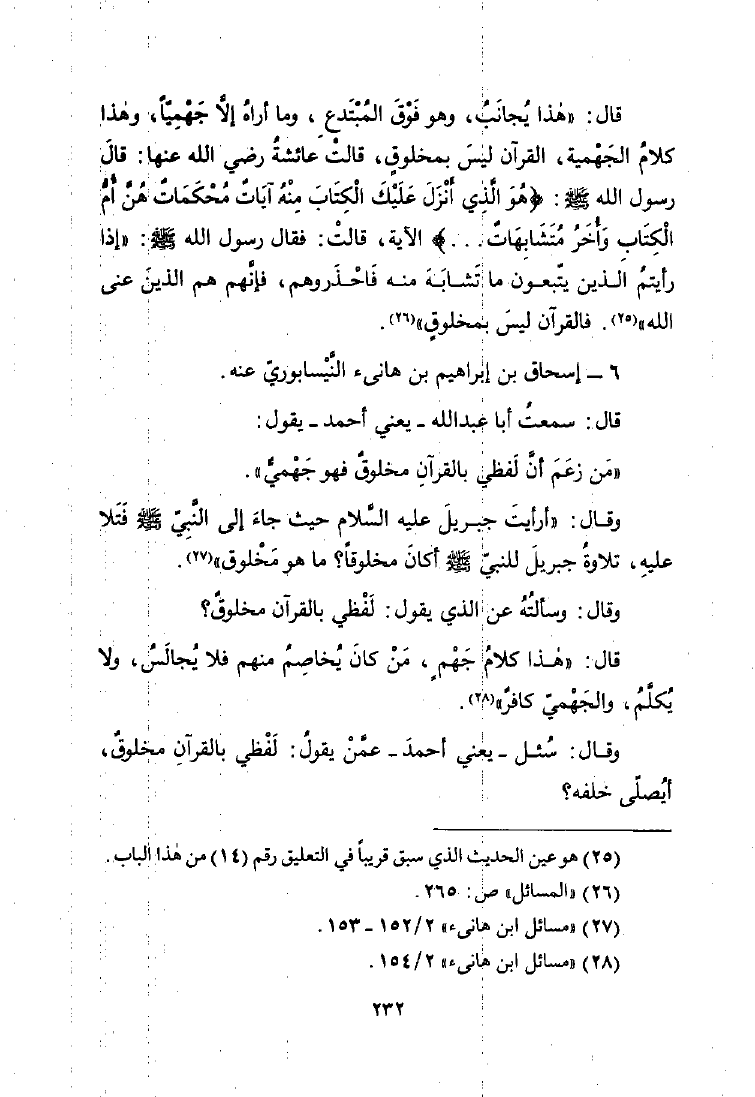 قال: «هٰذا يُجانَبُ، وهو فَوْقَ المُبْتَدعِ، وما أراهُ إلَّا جَهْمِيّاً، وهٰذا
كلامُ الجَهْمية، القرآن ليسَ بمخلوقٍ، قالتْ عائشةُ رضي الله عنها: قالَ
رسول الله ﷺ: ﴿هُوَ الَّذِي أَنْزَلَ عَلَيْكَ الْكِتَابَ مِنْهُ آيَاتٌ مُحْكَمَاتٌ هُنَّ أُمُّ
الْكِتَابِ وَأُخَرُ مُتَشَابِهَاتٌ...﴾ الآية، قالتْ: فقال رسول الله ﷺ: «إذا
رأيتمُ الـذين يتّبعـون ما تَشـابَـهَ منـه فَاحْـذَروهم، فإنَّهم هم الذينَ عنى
الله»(٢٥). فالقرآن ليسَ بمخلوقٍ»(٢٦).
٦ ــ إسحاق بن إبراهيم بن هانىء النَّيْسابوريّ عنه.
قال: سمعتُ أبا عبدالله ـ يعني أحمد ـ يقول:
«مَن زعَمَ أنَّ لَفظي بالقرآنِ مخلوقٌ فهو جَهْميٌّ».
وقـال: «أرأيتَ جبـريلَ عليه السَّلام حيث جاءَ إلى النَّبِيّ ﷺ فَتَلا
عليهِ، تلاوةُ جبريلَ للنبيّ ﷺ أكانَ مخلوقاً؟ ما هو مَخْلوق»(٢٧).
وقال: وسألتُهُ عن الذي يقول: لَفْظي بالقرآن مخلوقٌ؟
قال: «هٰـذا كلامُ جَهْمٍ، مَنْ كانَ يُخاصِمُ منهم فلا يُجالَسُ، ولا
يُكلَّمُ، والجَهْميّ كافرٌ»(٢٨).
وقـال: سُئـل ـ يعني أحمدَ ـ عمَّنْ يقولُ: لَفْظي بالقرآنِ مخلوقٌ،
أيُصلّى خلفه؟
(٢٥) هو عين الحديث الذي سبق قريباً في التعليق رقم (١٤) من هٰذا الباب.
(٢٦) «المسائل» ص: ٢٦٥.
(٢٧) «مسائل ابن هانىء» ٢/ ١٥٢ ـ ١٥٣.
(٢٨) «مسائل ابن هانىء» ٢/ ١٥٤.
٢٣٢